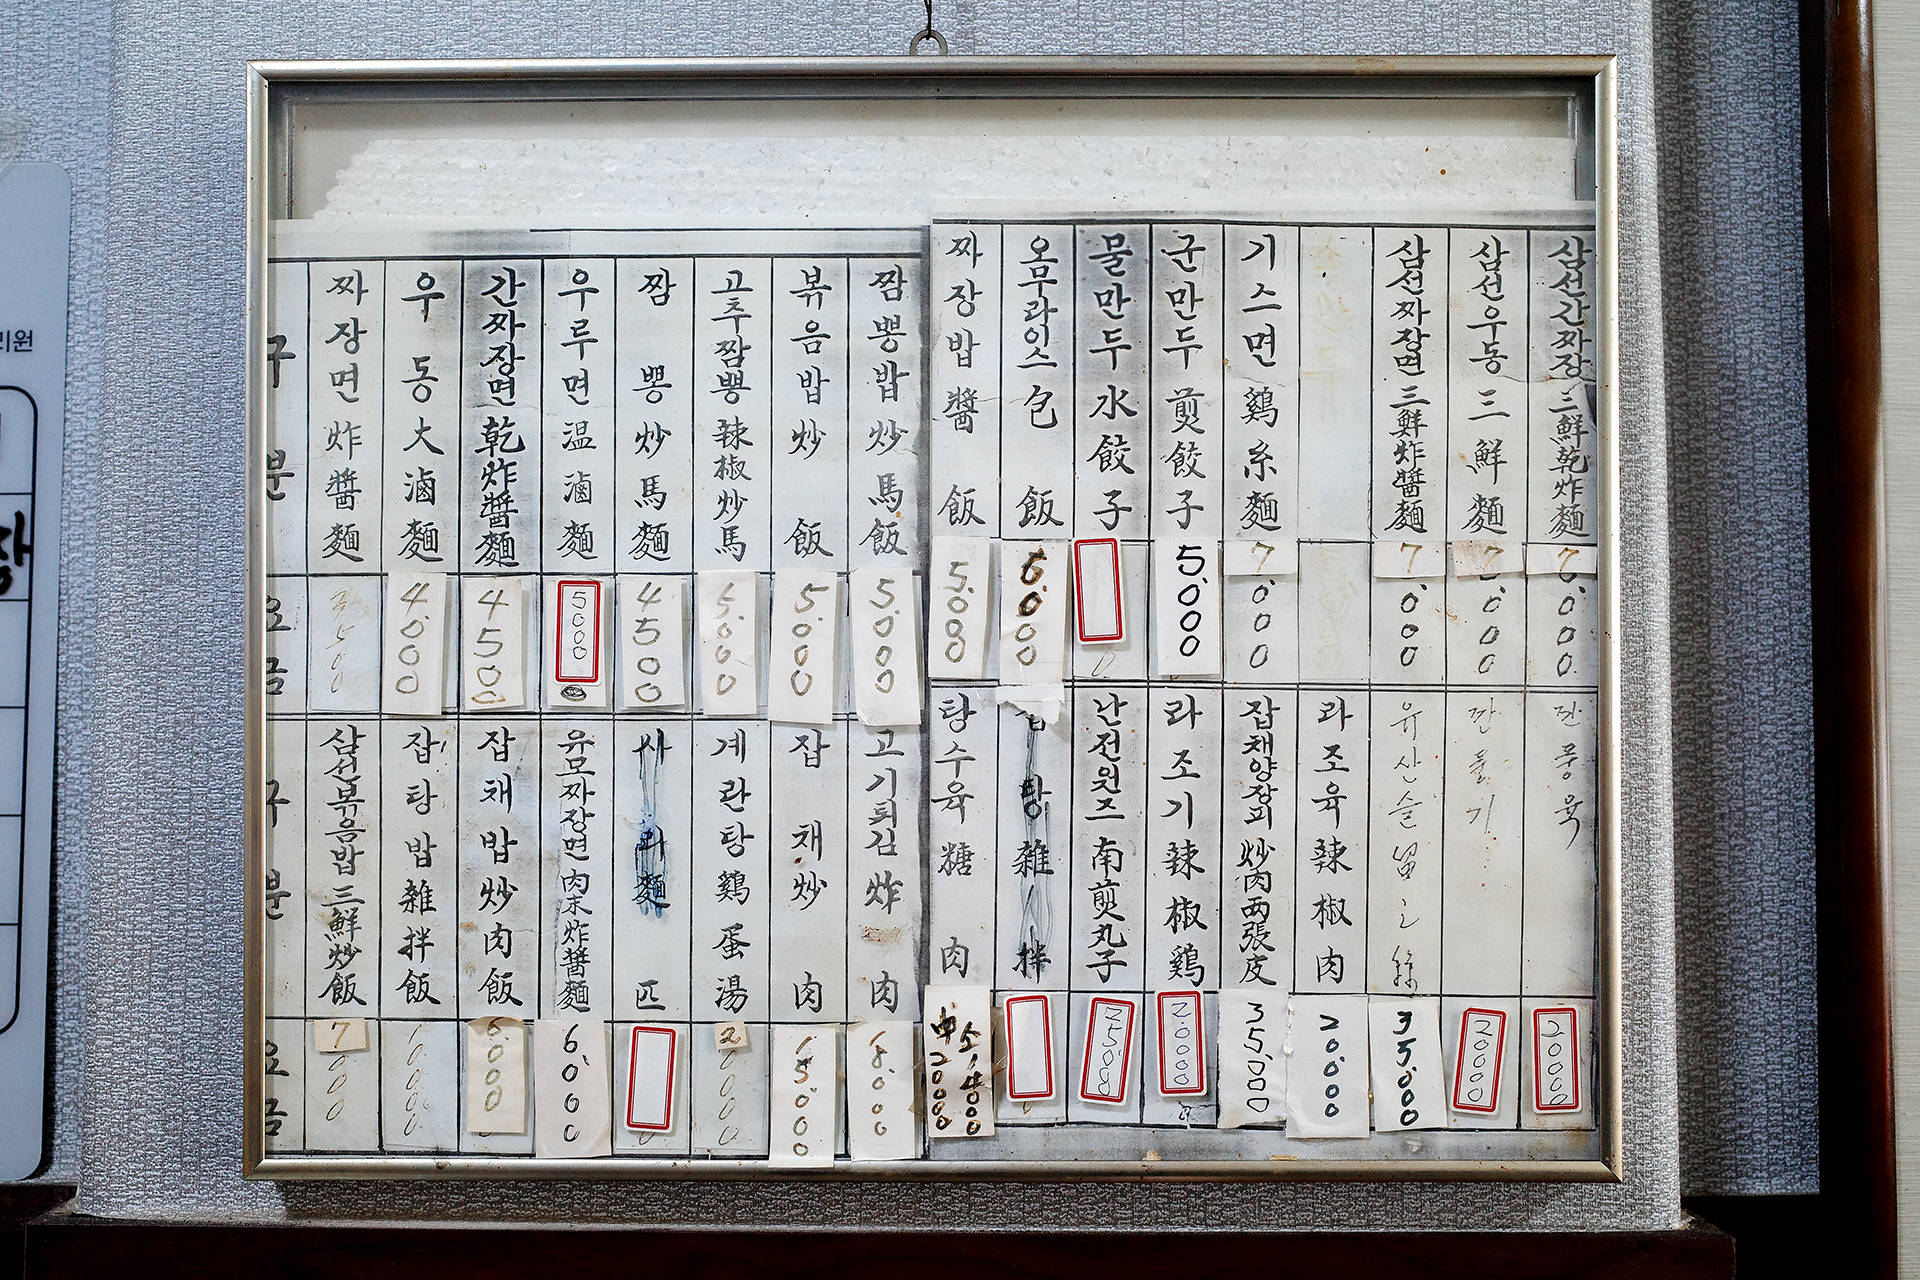 리원
구분
짜장면 炸醬麵
우동 大滷麵
간짜장면 乾炸醬麵
우루면 温滷麵
짬뽕 炒馬麵
고추짬뽕 辣椒炒馬
볶음밥 炒飯
짬뽕밥 炒馬飯
짜장밥 醬飯
오무라이스 包飯
물만두 水餃子
군만두 煎餃子
기스면 鷄糸麵
삼선짜장면 三鮮炸醬麵
삼선우동 三鮮麵
삼선간짜장 三鮮乾炸麵
요금
3500
4000
4500
5000
4500
5,000
5.000
5.000
5.000
6.000
5,000
7,000
7,000
7,000
7,000
구분
삼선볶음밥 三鮮炒飯
잡탕밥 雜拌飯
잡채밥 炒肉飯
유모짜장면 肉末炸醬麵
麵
계란탕 鷄蛋湯
잡채 炒肉
고기튀김 炸肉
탕수육 糖肉
탕 雜拌
난전원즈 南煎丸子
라조기 辣椒鷄
잡채양장피 炒肉両張皮
라조육 辣椒肉
유산슬
깐풍기
깐풍육
요금
7000
10.000
6.000
6,000
2000
15.000
18.000
中 20000
소 14000
25.000
20000
35,000
20.000
35.000
20000
20000